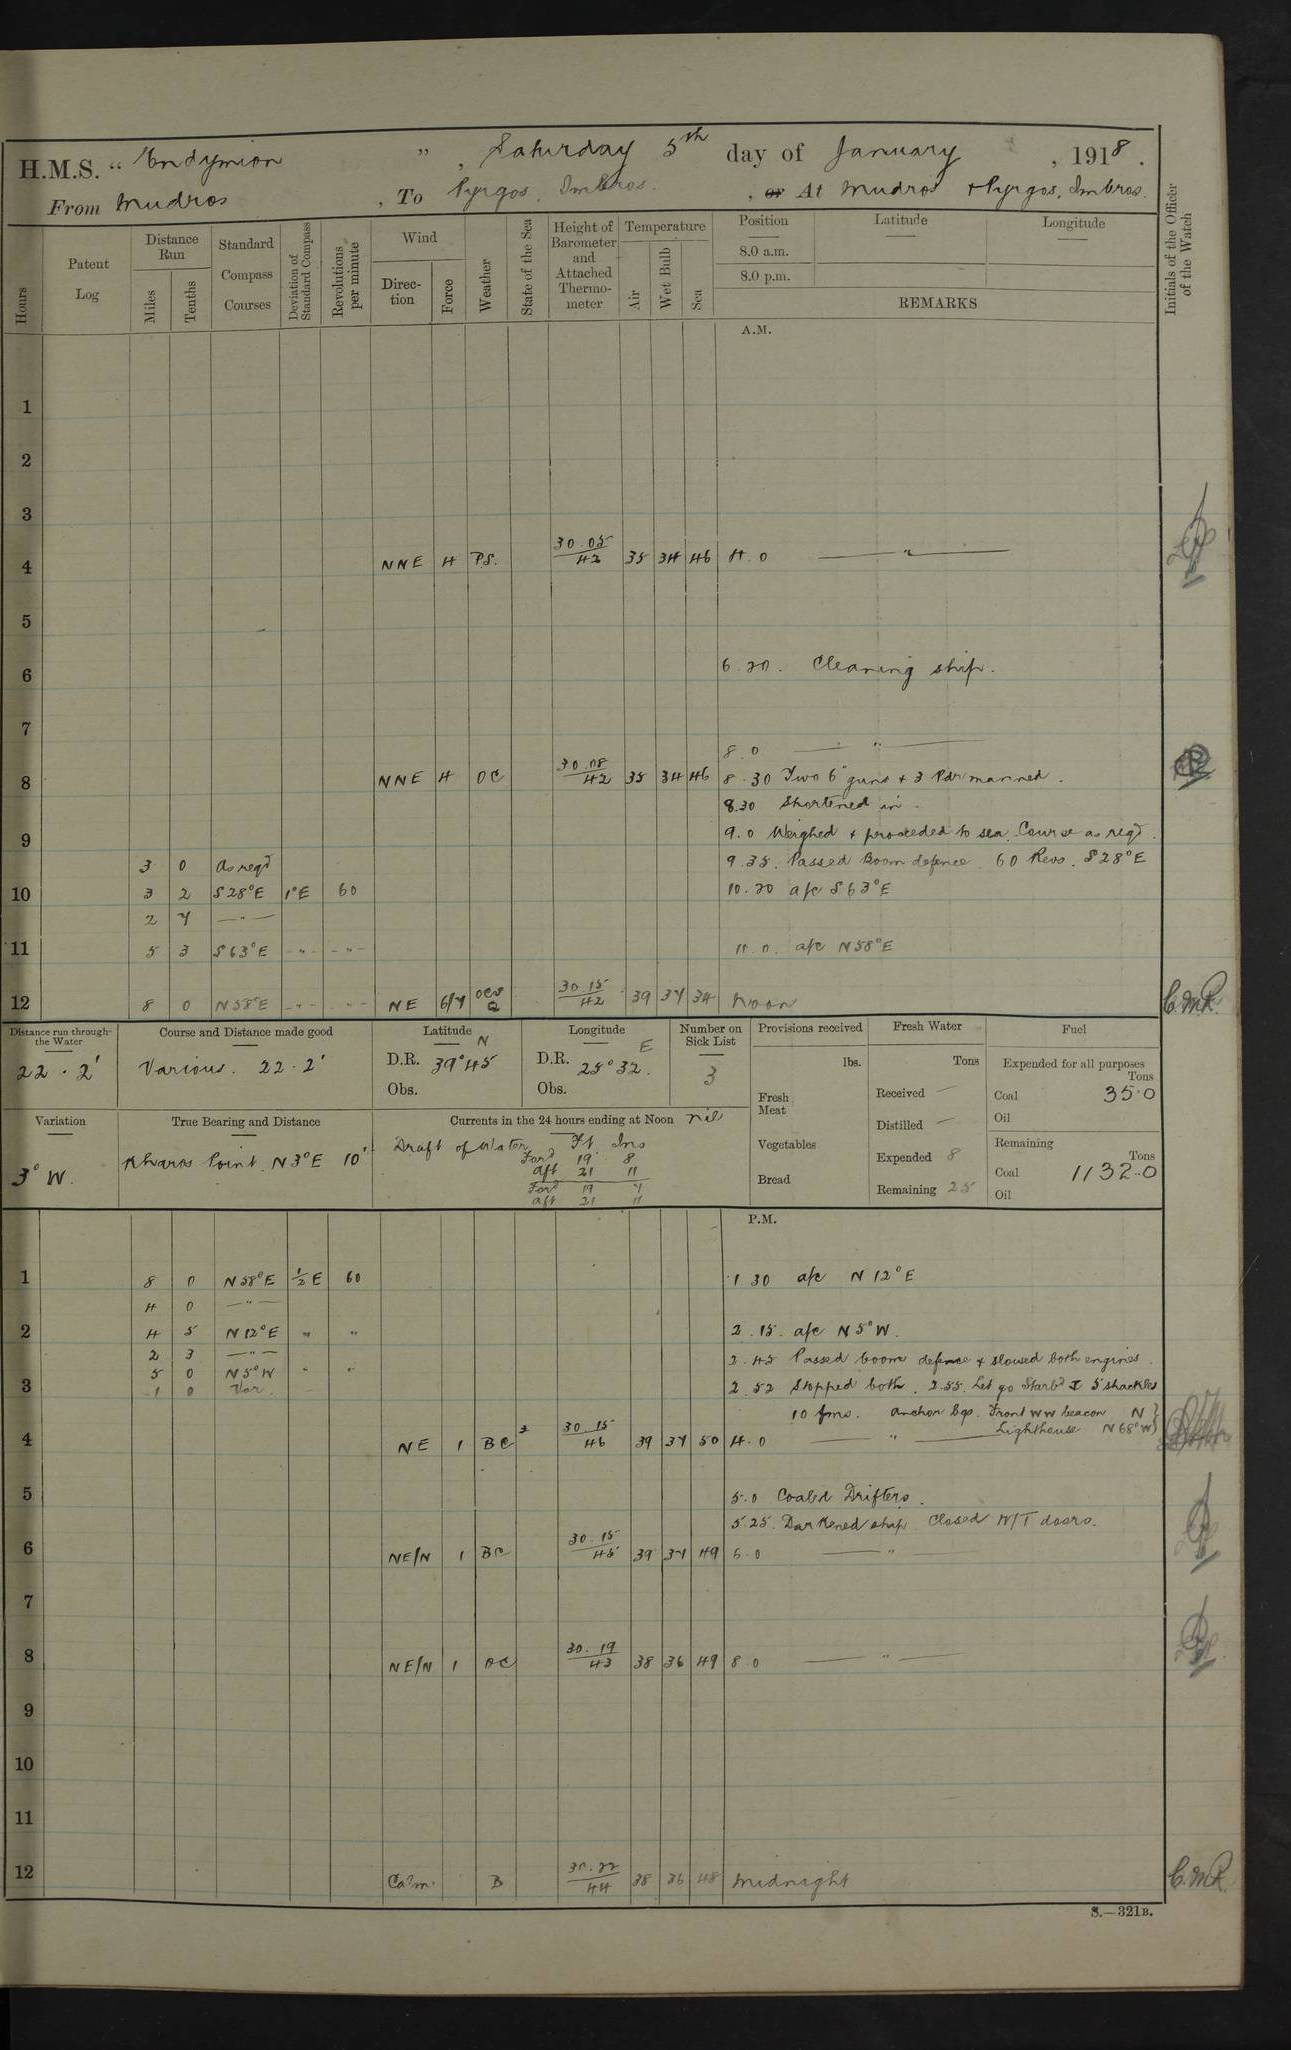 H.M.S. " Endymion " , Saturday 5th day of January , 1918 .
From Mudros , To Pyrgos, Imbros. , or At Mudros + Pyrgos, Imbros.
Hours
Patent Log
Distance Run
Miles
Tenths
Standard Compass Courses
Deviation of Standard Compass
Revolutions per minute
Wind
Direction
Force
Weather
State of the Sea
Height of Barometer and Attached Thermometer
Temperature
Air
Wet Bulb
Sea
Position
8.0 a.m.
8.0 p.m.
Latitude
Longitude
REMARKS
Initials of the Officer of the Watch
A.M.
1
2
3
4 NNE 4 PS. 30.05 42 35 34 46 4.0 — " —
5
6 6.20. Cleaning ship.
7
8.0 — " —
8 NNE 4 OC 30.08 42 35 34 46 8.30 Two 6" guns + 3 Pdr manned.
8.30 Shortened in.
9 9.0 Weighed + proceeded to sea. Course as reqd.
3 0 As reqd 9.35. Passed Boom defence. 60 Revs. S28°E
10 3 2 S28°E 1°E 60 10.20 a/c S63°E
2 7 — " —
11 5 3 S63°E - " - - " - 11.0. a/c N58°E
12 8 0 N58°E - " - - " - NE 6/7 Q 30.15 42 39 37 34 Noon C.M.R.
Distance run through the Water
22.2'
Course and Distance made good
Various. 22.2'
Latitude N
D.R. 39°45
Obs.
Longitude E
D.R. 25°32.
Obs.
Number on Sick List
3
Provisions received
lbs.
Fresh Meat
Vegetables
Bread
Fresh Water
Tons
Received —
Distilled —
Expended 8
Remaining 25
Fuel
Expended for all purposes
Tons
Coal 35.0
Oil
Remaining
Tons
Coal 1132.0
Oil
Variation
3° W.
True Bearing and Distance
Point N3°E 10'
Currents in the 24 hours ending at Noon nil
Draft of Water Ft. Ins
Ford 19 8
aft 21 11
Ford 19 7
aft 21 11
P.M.
1 8 0 N58°E ½E 60 1 30 a/c N12°E
4 0 — " —
2 4 5 N12°E " " 2.15. a/c N5°W.
2 3 — " — 2.45 Passed boom defence + slowed both engines.
5 0 N5°W " "
3 1 0 Var. 2.52 Stopped both. 2.55. Let go Starbd 5 shackles
10 fms. anchor bgs. Front WW beacon N }
Lighthouse N68°W }
4 NE 1 BC 2 30.15 46 39 37 50 4.0 — " —
5 5.0 Coaled Drifters.
5.25. Darkened ship. Closed W/T doors.
6 NE/N 1 BC 30.15 45 39 37 49 6.0 — " —
7
8 NE/N 1 OC 30.19 43 38 36 49 8.0 — " —
9
10
11
12 Calm. B 30.22 44 38 36 48 Midnight C.M.R.
S.—321B.